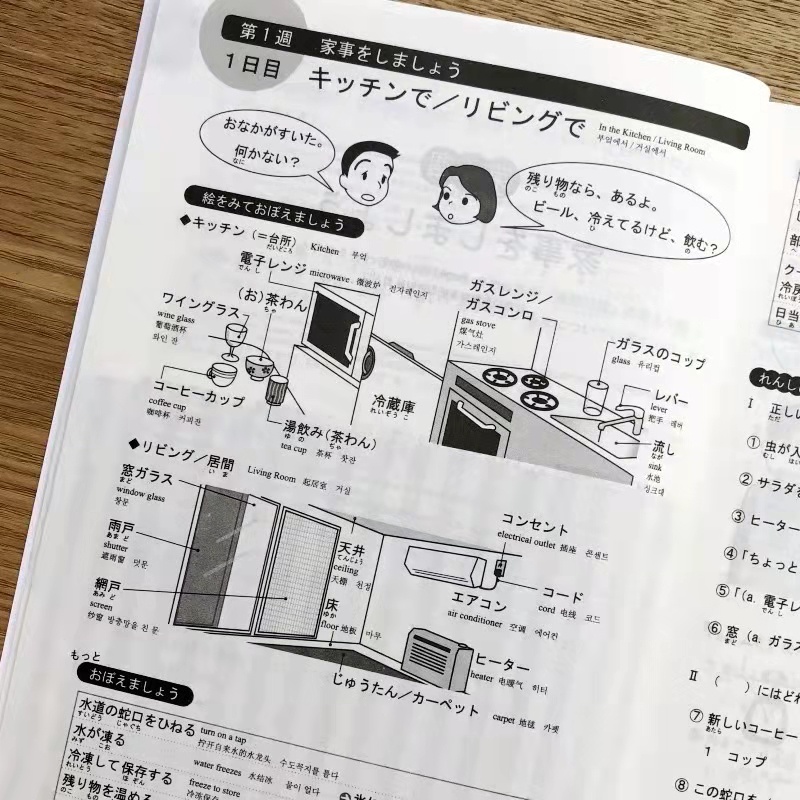 第1週 家事をしましょう
1日目 キッチンで／リビングで
In the Kitchen / Living Room
부엌에서 / 거실에서
おなかがすいた。
何かない？
なに
残り物なら、あるよ。
のこ もの
ビール、冷えてるけど、飲む？
ひ の
絵をみておぼえましょう
◆キッチン（＝台所） Kitchen 부엌
だいどころ
電子レンジ microwave 微波炉 전자레인지
でん し
ガスレンジ／
ガスコンロ
gas stove
煤气灶
가스레인지
ワイングラス
wine glass
葡萄酒杯
와인 잔
（お）茶わん
ちゃ
ガラスのコップ
glass 유리컵
コーヒーカップ
coffee cup
咖啡杯 커피잔
冷蔵庫
れいぞう こ
レバー
lever
把手 레버
湯飲み（茶わん）
ゆ の ちゃ
tea cup 茶杯 찻잔
流し
なが
sink
水池
싱크대
◆リビング／居間 Living Room 起居室 거실
い ま
窓ガラス
まど
window glass
창문
雨戸
あま ど
shutter
遮雨窗 덧문
網戸
あみ ど
screen
纱窗 방충망을 친 문
天井
てんじょう
ceiling
天棚 천정
床
ゆか
floor 地板 마루
コンセント
electrical outlet 插座 콘센트
エアコン
air conditioner 空调 에어컨
コード
cord 电线 코드
ヒーター
heater 电暖气 히터
じゅうたん／カーペット carpet 地毯 카펫
もっと
おぼえましょう
水道の蛇口をひねる turn on a tap
すいどう じゃぐち
拧开自来水的水龙头 수도꼭지를 틀다
水が凍る water freezes 水结冰 물이 얼다
みず こお
冷凍して保存する freeze to store
れいとう ほ ぞん
冷冻保存
残り物を温める
のこ もの
部
ク
冷房
れいぼう
日当
ひ あ
れんし
Ⅰ 正し
ただ
① 虫が入
むし はい
② サラダを
③ ヒーター
④ 「ちょっと
⑤ 「（a. 電子レ
でん し
⑥ 窓（a. ガラ
まど
Ⅱ （ ）にはどれ
⑦ 新しいコーヒー
あたら
1 コップ
⑧ この蛇口を